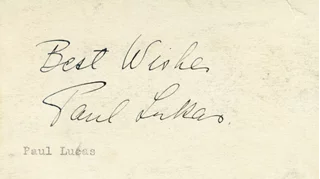 Best Wishes
Paul Lukas.
Paul Lucas